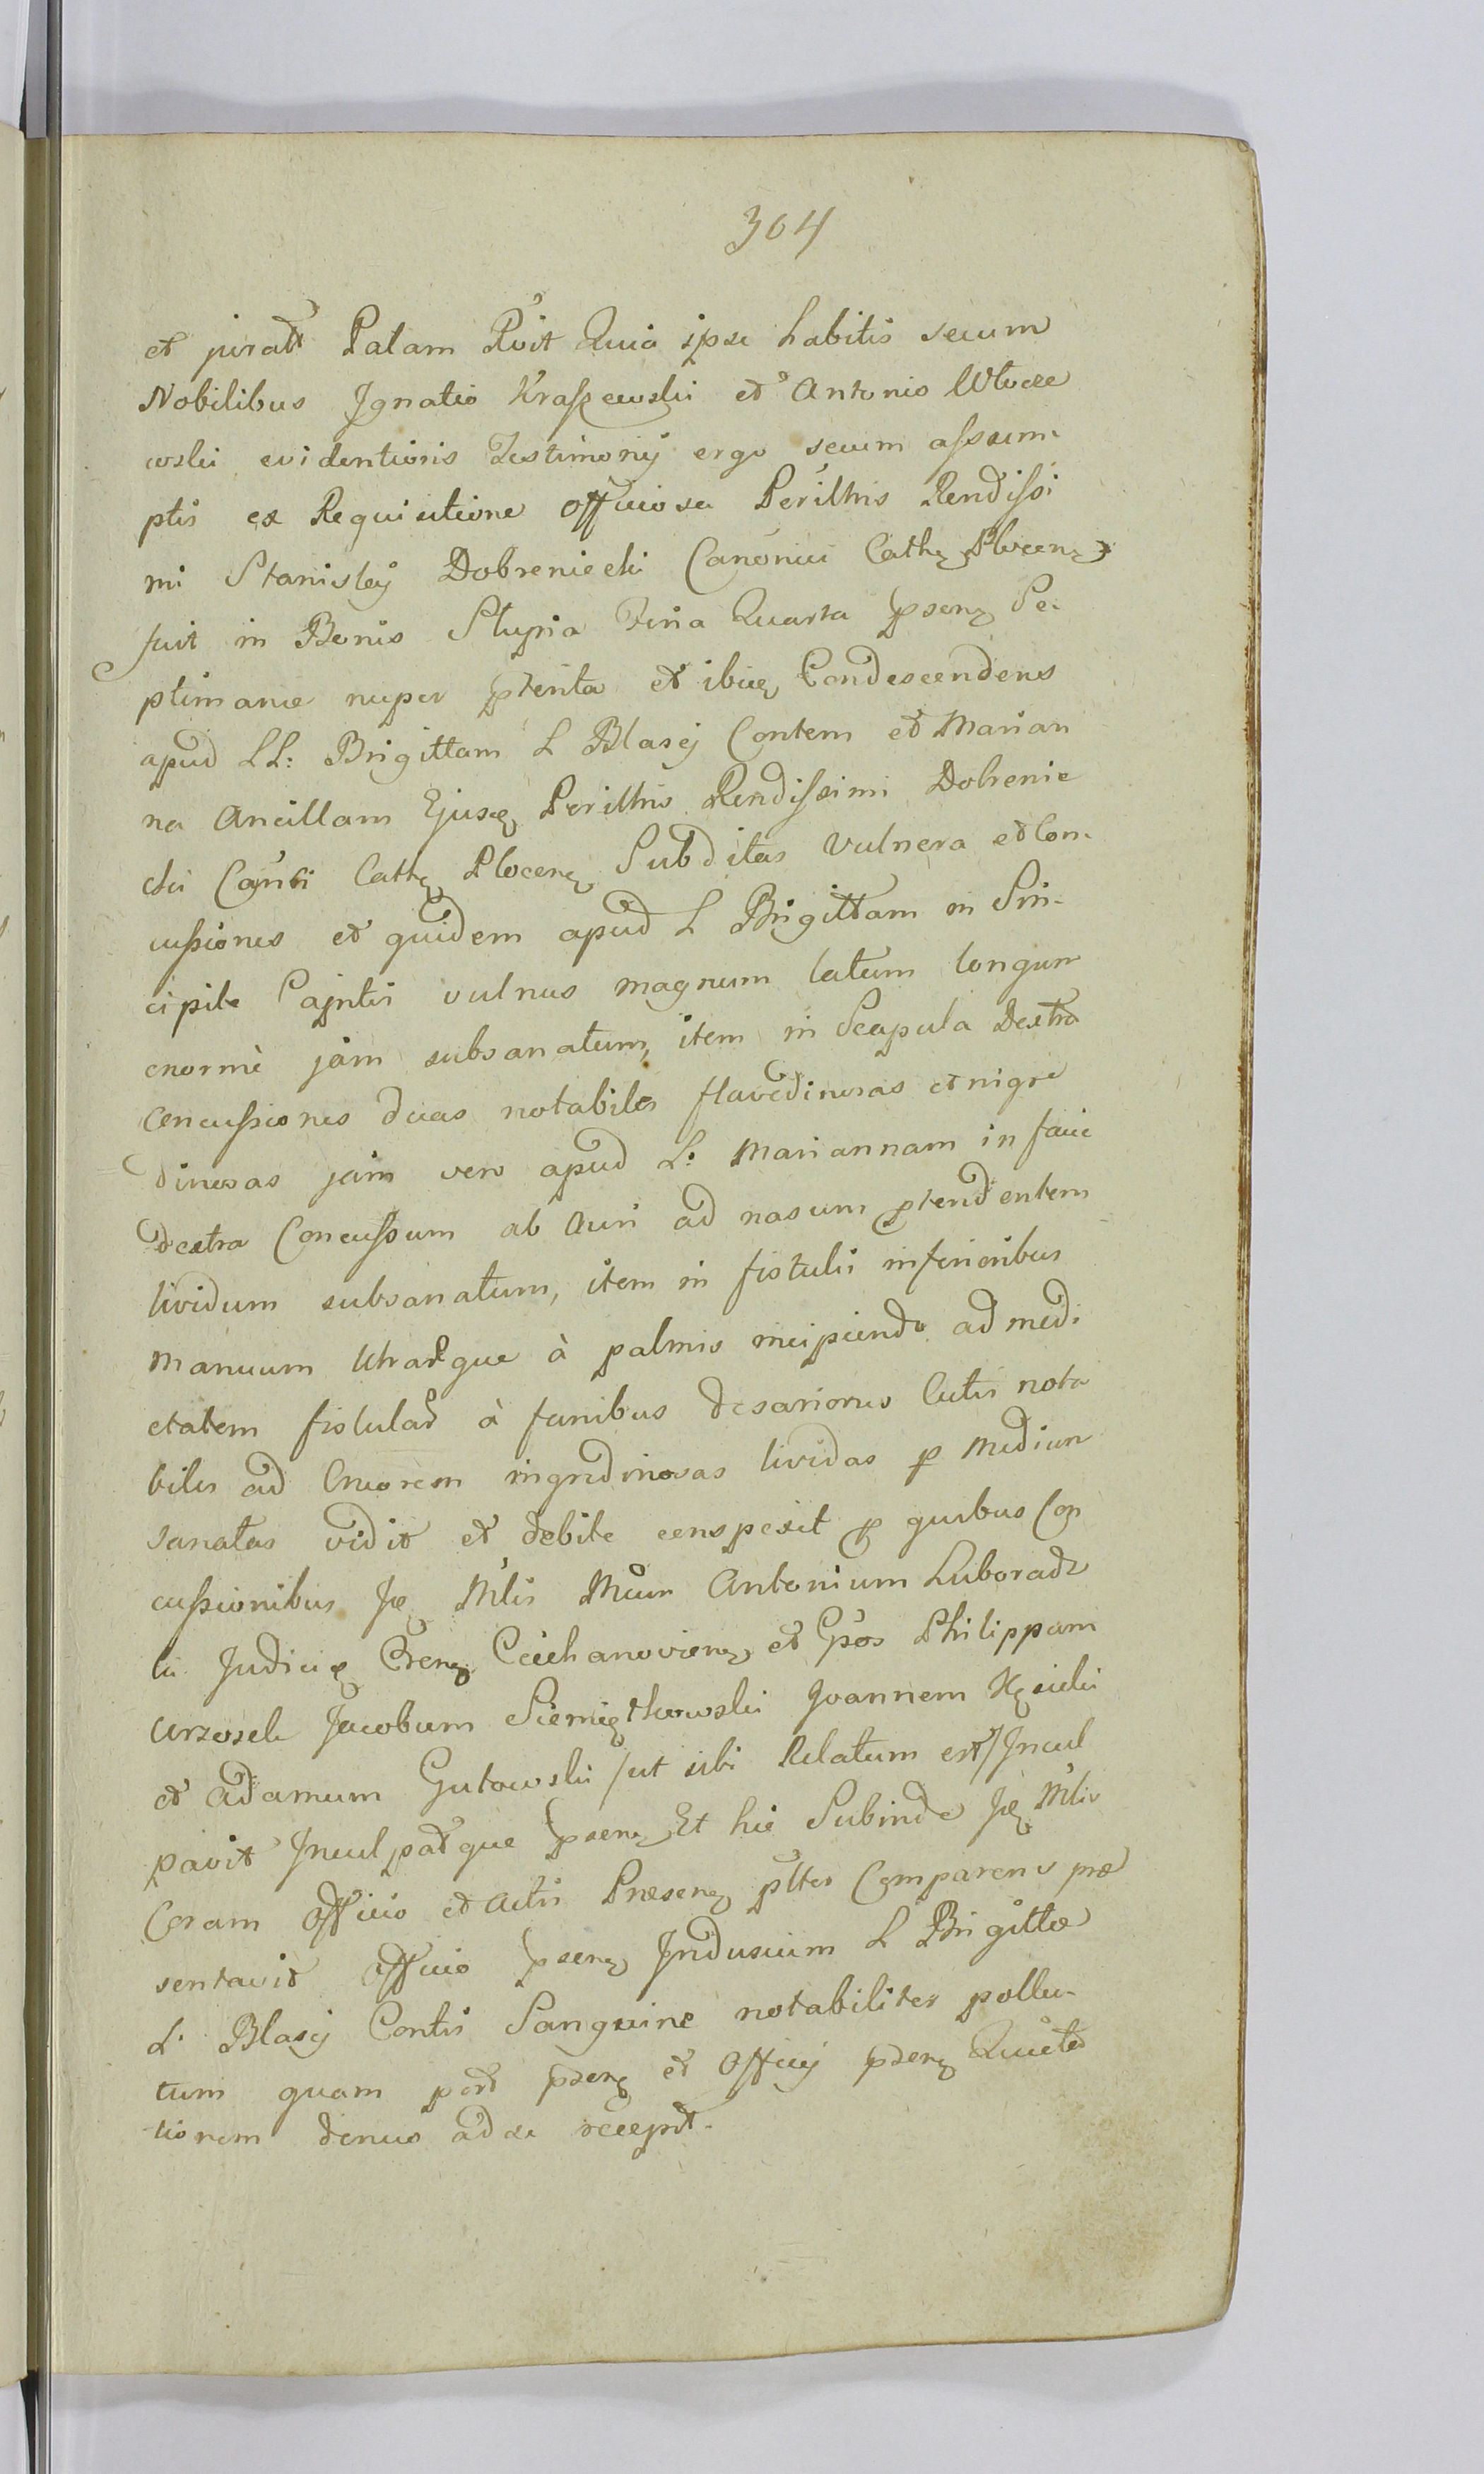 304
et juratt Palam Rvit Quia ipse habitis secum
Nobilibus Jgnatio Kraszewski et Antonio Wtocze
wski evidentioris Testimonij ergo secum assum-
ptis ex Requisitione officiosa Perillris Rendissi
mi Stanislaj Dobreniecki Canonici Cathę Plocenę
fuit in Bonis Slupia Feria Quarta psenę Se-
ptimanæ nuper pterita et ibię Condescendens
apud LL: Brigittam L Blasij Contem et Marian
na Ancillam Ejusę Perillris Rendissimi Dobrenie
cki Canci Cathę Plocenę Subditas Vulnera et Con-
cussiones et quidem apud L Brigittam in Sin-
cipite Capitis vulnus magnum latum longum
enormè jam subsanatum, item in Scapula Dextra
Concussiones duas notabiles flavedinosas et nigre
dinosas jam vero apud L: Mariannam in facie
dextra Concussum ab Auri ad nasum ptendentem
lividum subsanatum, item in fistulis inferioribus
Manuum Utrarque à palmis incipiendo ad medi
etatem fistular à funibus desariones Cutis nota
biles ad Cruorem nigredinosas lividas p Medium
Sanatas vidit et debite conspexit p quibus Con
cussionibus Ję Mlis Mcum Antonium Luboradz
ki Judicię Crenę Ciechanovienę et Gsos Philippum
Wrzosek Jacobum Siemiątkowski Joannem Kęsicki
et Adamum Gutowski /ut sibi Relatum est/ Jncul
pavit Jnculpatque psenę Et hic Subinde Ję Mlis
Coram Officio et Actis Præsenę plter Comparens præ
sentavit Officio psenę Jndusium L Brigittæ
L. Blasij Contis Sanguine notabiliter pollu-
tum quam post psenę et Officij psenę Quieta
tionem denuo ad se recepit.